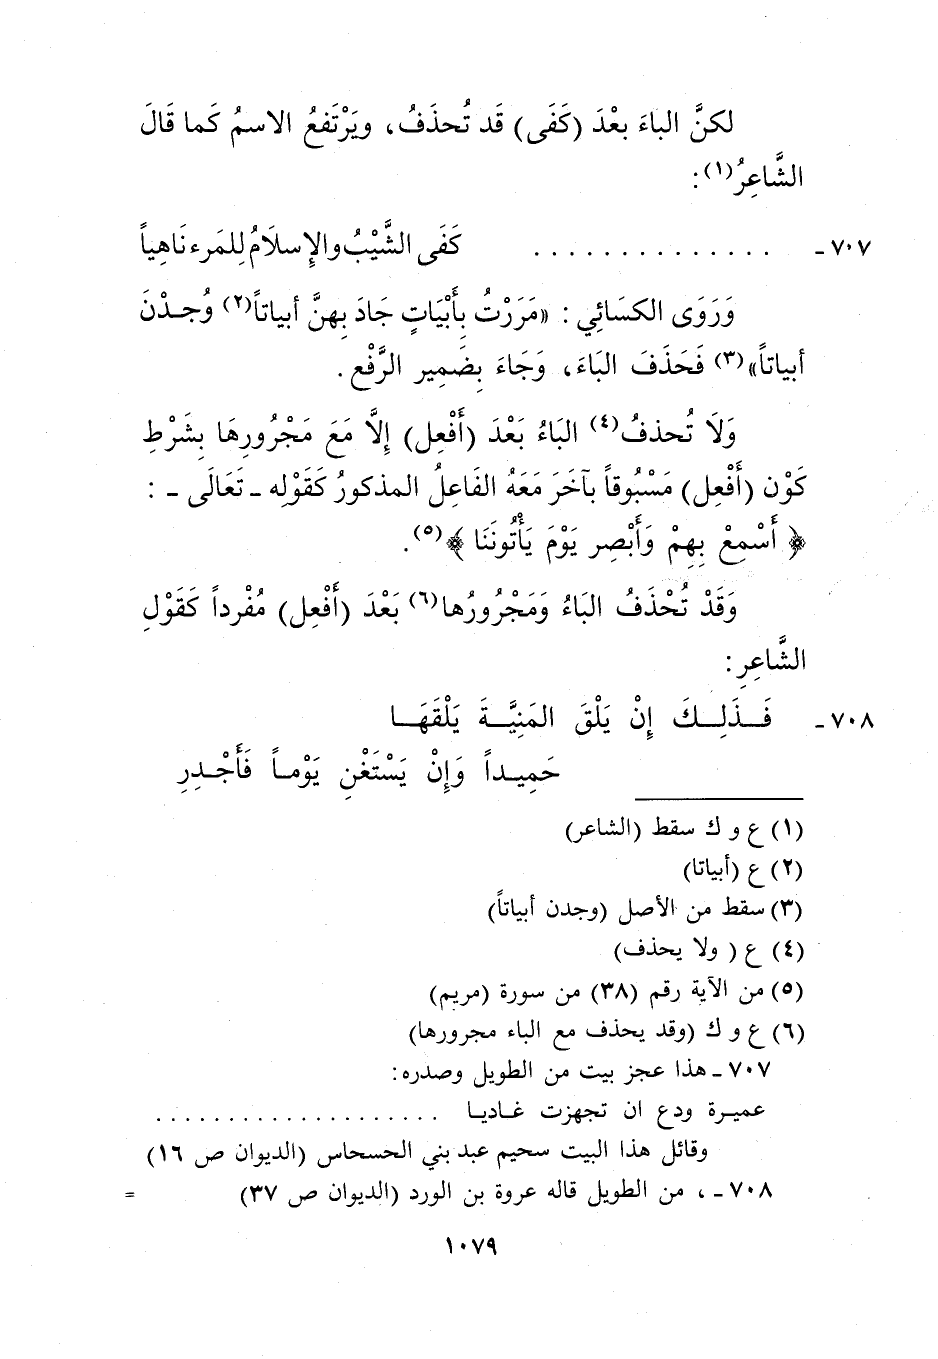 لكنَّ الباءَ بعْدَ (كَفَى) قَد تُحذَفُ، ويَرْتَفعُ الاسمُ كَما قَالَ
الشَّاعِرُ(١):
٧٠٧ـ . . . . . . . . . . . . . . كَفَى الشَّيْبُ والإِسلَامُ لِلمَرء نَاهِياً
وَرَوَى الكسَائِي: «مَرَرْتُ بِأَبْيَاتٍ جَادَ بِهنَّ أبياتاً(٢) وُجـدْنَ
أبياتاً»(٣) فَحَذَفَ البَاءَ، وَجَاءَ بِضَمِير الرَّفْع.
وَلَا تُحذفُ(٤) البَاءُ بَعْدَ (أَفْعِل) إلَّا مَعَ مَجْرُورهَا بِشَرْطِ
كَوْن (أَفْعِل) مَسْبُوقاً بآخَرَ مَعَهُ الفَاعِلُ المذكورُ كَقَوْله ـ تَعَالَى ـ :
﴿ أَسْمِعْ بِهِمْ وَأَبْصِر يَوْمَ يَأْتُونَنَا ﴾(٥).
وَقَدْ تُحْذَفُ البَاءُ وَمَجْرُورُها(٦) بَعْدَ (أَفْعِل) مُفْرداً كَقَوْلِ
الشَّاعِرِ:
٧٠٨ـ فَــذَلِــكَ إِنْ يَلْقَ المَنِيَّــةَ يَلْقَهَــا
حَمِيـداً وَإِنْ يَسْتَغْنِ يَوْمـاً فَأَجْـدِرِ
(١) ع و ك سقط (الشاعر)
(٢) ع (أبياتا)
(٣) سقط من الأصل (وجدن أبياتاً)
(٤) ع ( ولا يحذف)
(٥) من الآية رقم (٣٨) من سورة (مريم)
(٦) ع و ك (وقد يحذف مع الباء مجرورها)
٧٠٧ ـ هذا عجز بيت من الطويل وصدره:
عميـرة ودع ان تجهزت غـاديـا . . . . . . . . . . . . . . . . . . .
وقائل هذا البيت سحيم عبد بني الحسحاس (الديوان ص ١٦)
٧٠٨ ـ ، من الطويل قاله عروة بن الورد (الديوان ص ٣٧) =
١٠٧٩